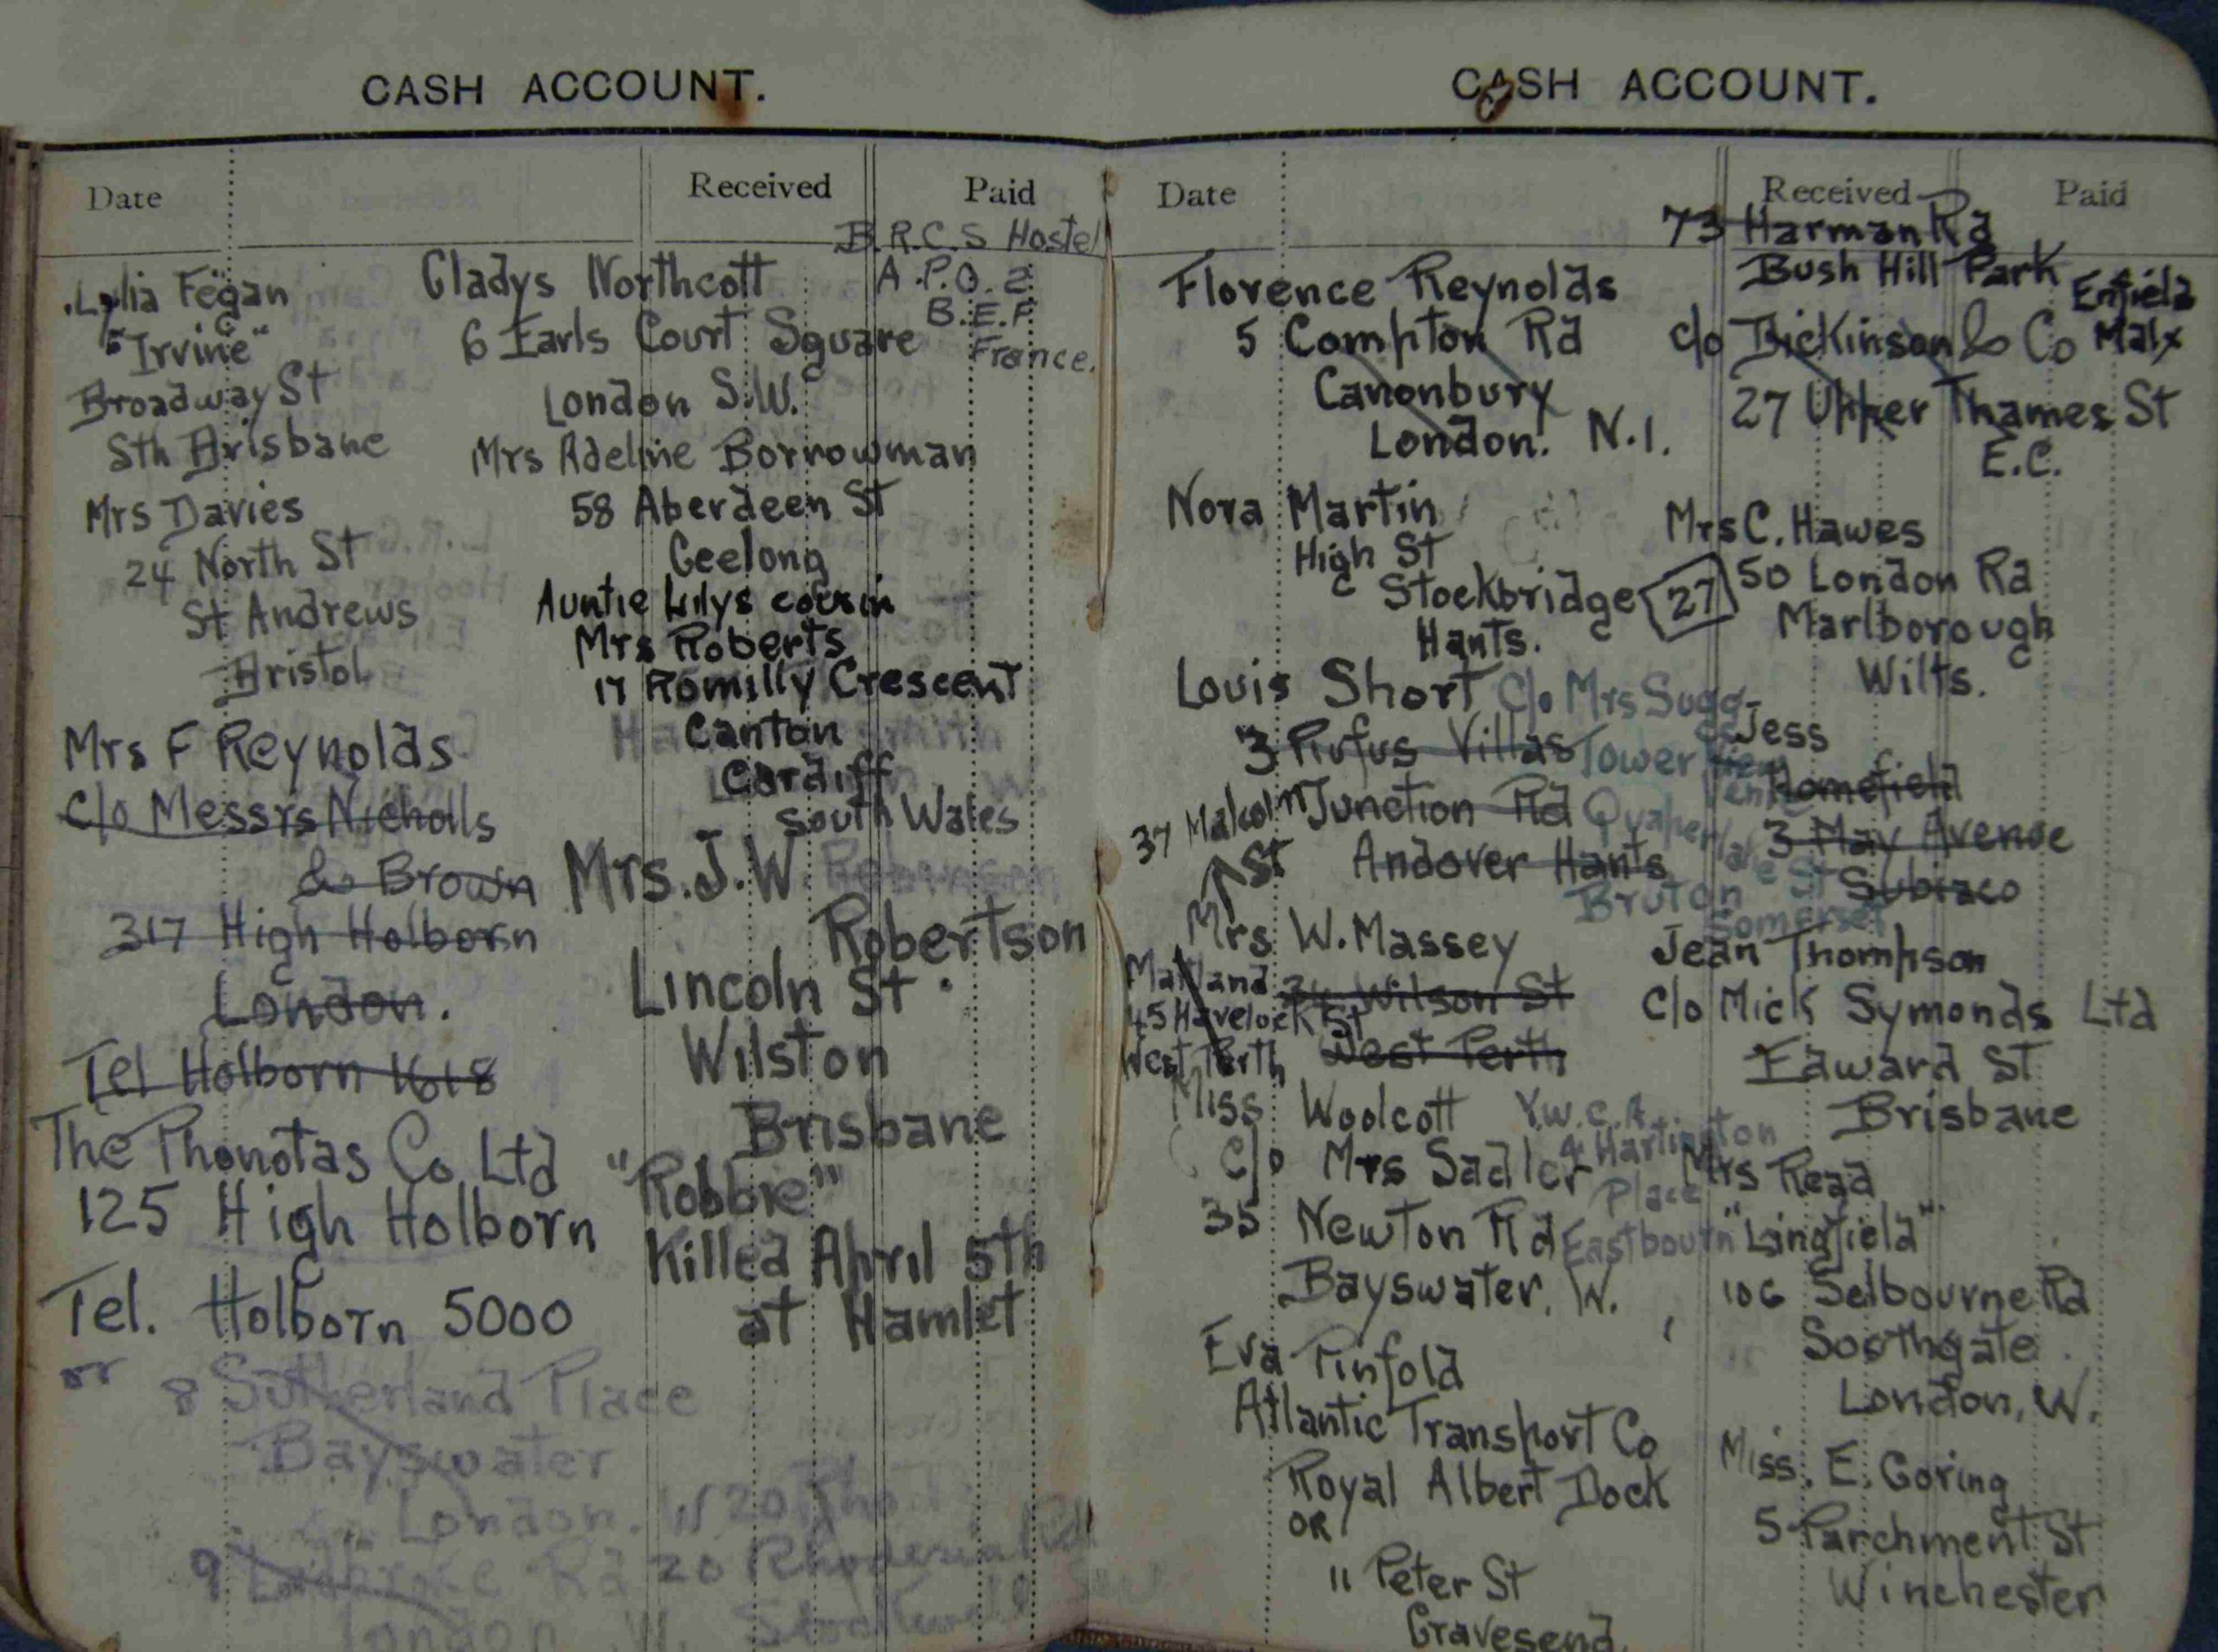 CASH ACCOUNT.
Date Received Paid
Lylia Fegan
"Irvine"
Broadway St
Sth Brisbane
Mrs Davies
24 North St
St Andrews
Bristol
Mrs F Reynolds
c/o Messrs Nicholls
& Brown
317 High Holborn
London.
Tel Holborn 1618
The Phonotas Co Ltd
125 High Holborn
Tel. Holborn 5000
or 8 Sutherland Place
Bayswater
London. W
9 Ladbroke Rd
London W.
20 Rhodesia Rd
Stockwell SW
B.R.C.S Hostel
A.P.O. 2
B.E.F
France.
Gladys Northcott
6 Earls Court Square
London S.W.
Mrs Adeline Borrowman
58 Aberdeen St
Geelong
Auntie Lilys cousin
Mrs Roberts
17 Romilly Crescent
Canton
Cardiff
South Wales
Mrs. J. W. Robinson
Robertson
Lincoln St.
Wilston
Brisbane
"Robbie"
Killed April 5th
at Hamlet
CASH ACCOUNT.
Date Received Paid
Florence Reynolds
5 Compton Rd
Canonbury
London. N.1.
Nora Martin
High St
Stockbridge
Hants.
27
Louis Short c/o Mrs Sugg
3 Rufus Villas Tower View
Junction Rd Quaperlake St
Andover Hants Bruton
Somerset
37 Malcolm
St
Mrs W. Massey
34 Wilson St
West Perth
Maitland
45 Havelock St
West Perth
Miss Woolcott Y.W.C.A.
c/o Mrs Sadler 4 Hartington
Place
35 Newton Rd Eastbourn
Bayswater. W.
Eva Pinfold
Atlantic Transport Co
Royal Albert Dock
OR
11 Peter St
Gravesend.
73 Harman Rd
Bush Hill Park
Enfield
Malx
c/o Dickinson & Co
27 Upper Thames St
E.C.
Mrs C. Hawes
50 London Rd
Marlborough
Wilts.
Jess
Homefield
3 May Avenue
Subiaco
Jean Thompson
c/o Mick Symonds Ltd
Edward St
Brisbane
Mrs Read
"Lingfield"
106 Selbourne Rd
Southgate
London, W.
Miss. E. Goring
5 Parchment St
Winchester